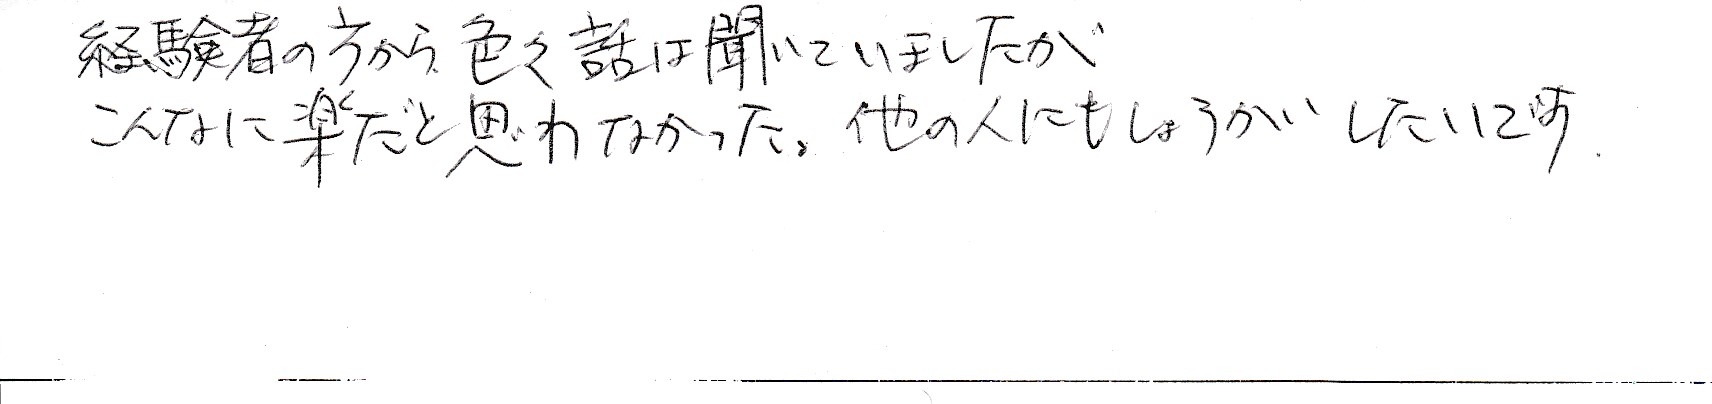 経験者の方から色々話は聞いていましたが
こんなに楽だと思わなかった。他の人にもしょうかいしたいです.